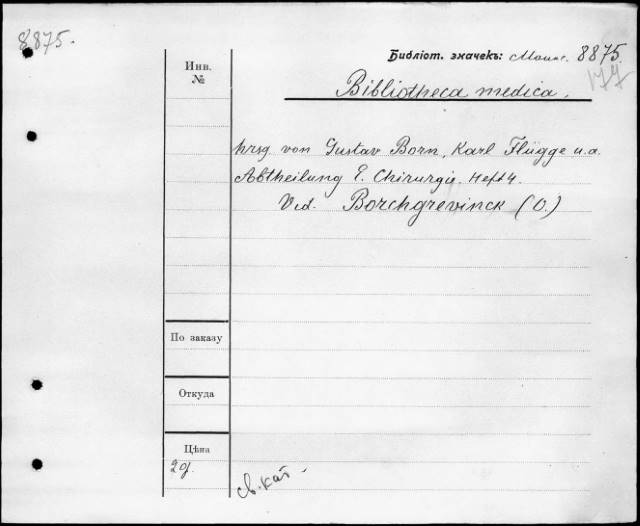 8875.
Библіот. значекъ: 8875
177
Инв.
№
Bibliotheca medica.
hrsg. von Gustav Born, Karl Flügge u.a.
Abtheilung E. Chirurgie. Heft 4.
Vid. Borchgrevinck (O.)
По заказу
Откуда
Цѣна
св. кат.